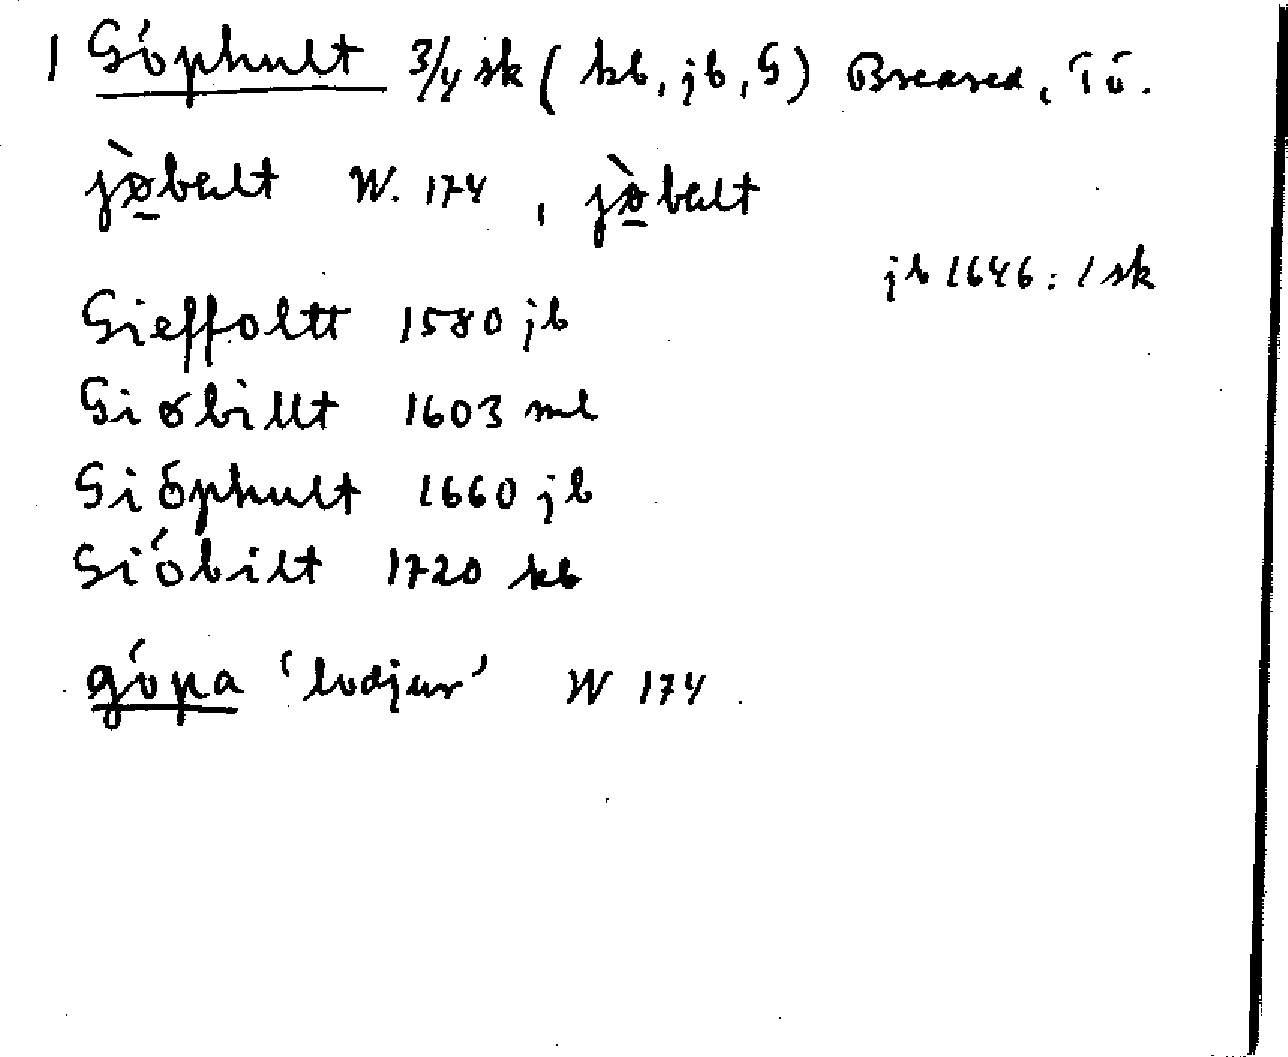 1 Göphult 3/4 sk (kb, jb, G) Breared, Tö.
jø̀balt W. 174, jø̀balt
jb 1646: 1 sk
Gieffoltt 1580 jb
Giøbillt 1603 ml
Giöphult 1660 jb
Giöbilt 1720 kb
göpa 'lodjur' W 174